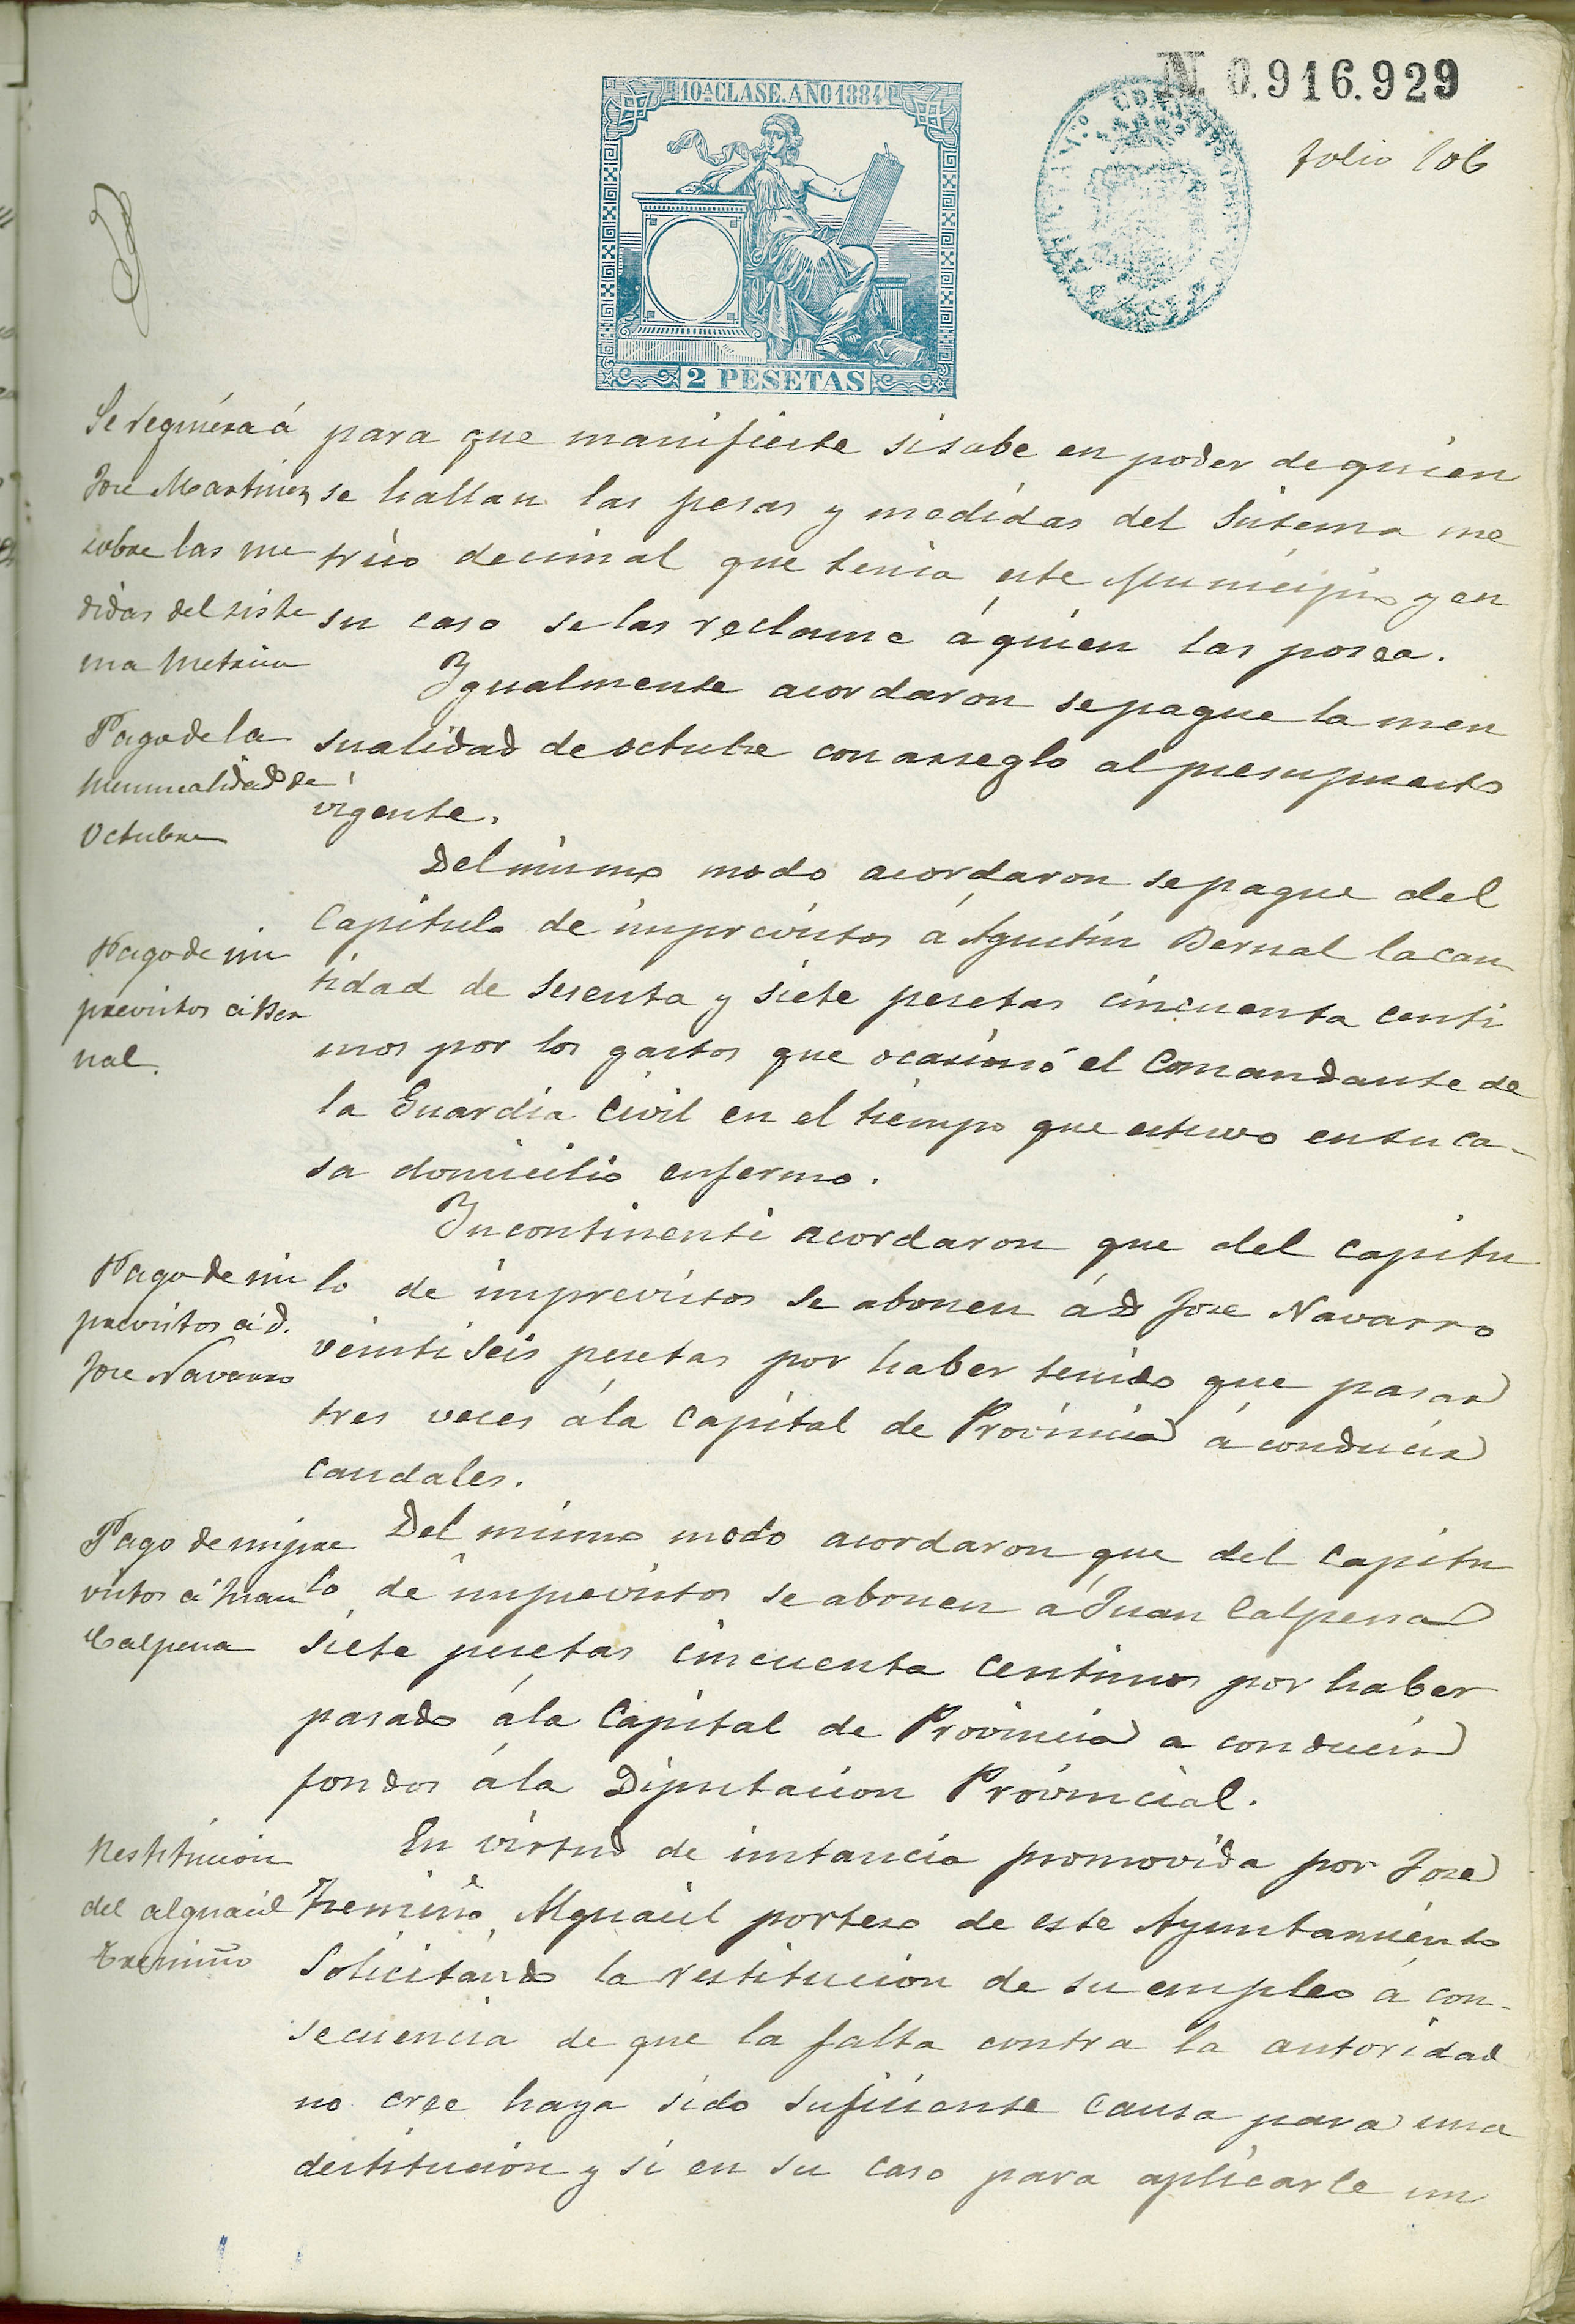 10ª CLASE. AÑO 1884
2 PESETAS
N 0.916.929
folio 106
Se requiera á
Jose Martinez
sobre las me
didas del siste
ma metrico
para que manifieste si sabe en poder de quien
se hallan las pesas y medidas del Sistema me
trico decimal que tenia este Municipio y en
su caso se las reclame á quien las posea.
Pago de la
mensualidad de
Octubre
Igualmente acordaron se pague la men
sualidad de octubre con arreglo al presupuesto
vigente.
Pago de im
previstos á Ber
nal.
Del mismo modo acordaron se pague del
Capitulo de imprevistos á Agustin Bernal la can
tidad de sesenta y siete pesetas cincuenta centi
mos por los gastos que ocasionó el Comandante de
la Guardia Civil en el tiempo que estuvo en su ca-
sa domicilio enfermo.
Pago de im
previstos á D.
Jose Navarro
Incontinenti acordaron que del capitu
lo de imprevistos se abonen á D Jose Navarro
veinti seis pesetas por haber tenido que pasar
tres veces á la Capital de Provincia á conducir
caudales.
Pago de impre
vistos á Juan
Calpena
Del mismo modo acordaron que del Capitu
lo de imprevistos se abonen á Juan Calpena
siete pesetas cincuenta centimos por haber
pasado á la Capital de Provincia a conducir
fondos á la Diputacion Provincial.
Restitucion
del alguacil
Tremiño
En virtud de instancia promovida por Jose
Tremiño Alguacil portero de este Ayuntamiento
Solicitando la restitucion de su empleo á con-
secuencia de que la falta contra la autoridad
no cree haya sido suficiente causa para una
destitucion y si en su caso para aplicarle un